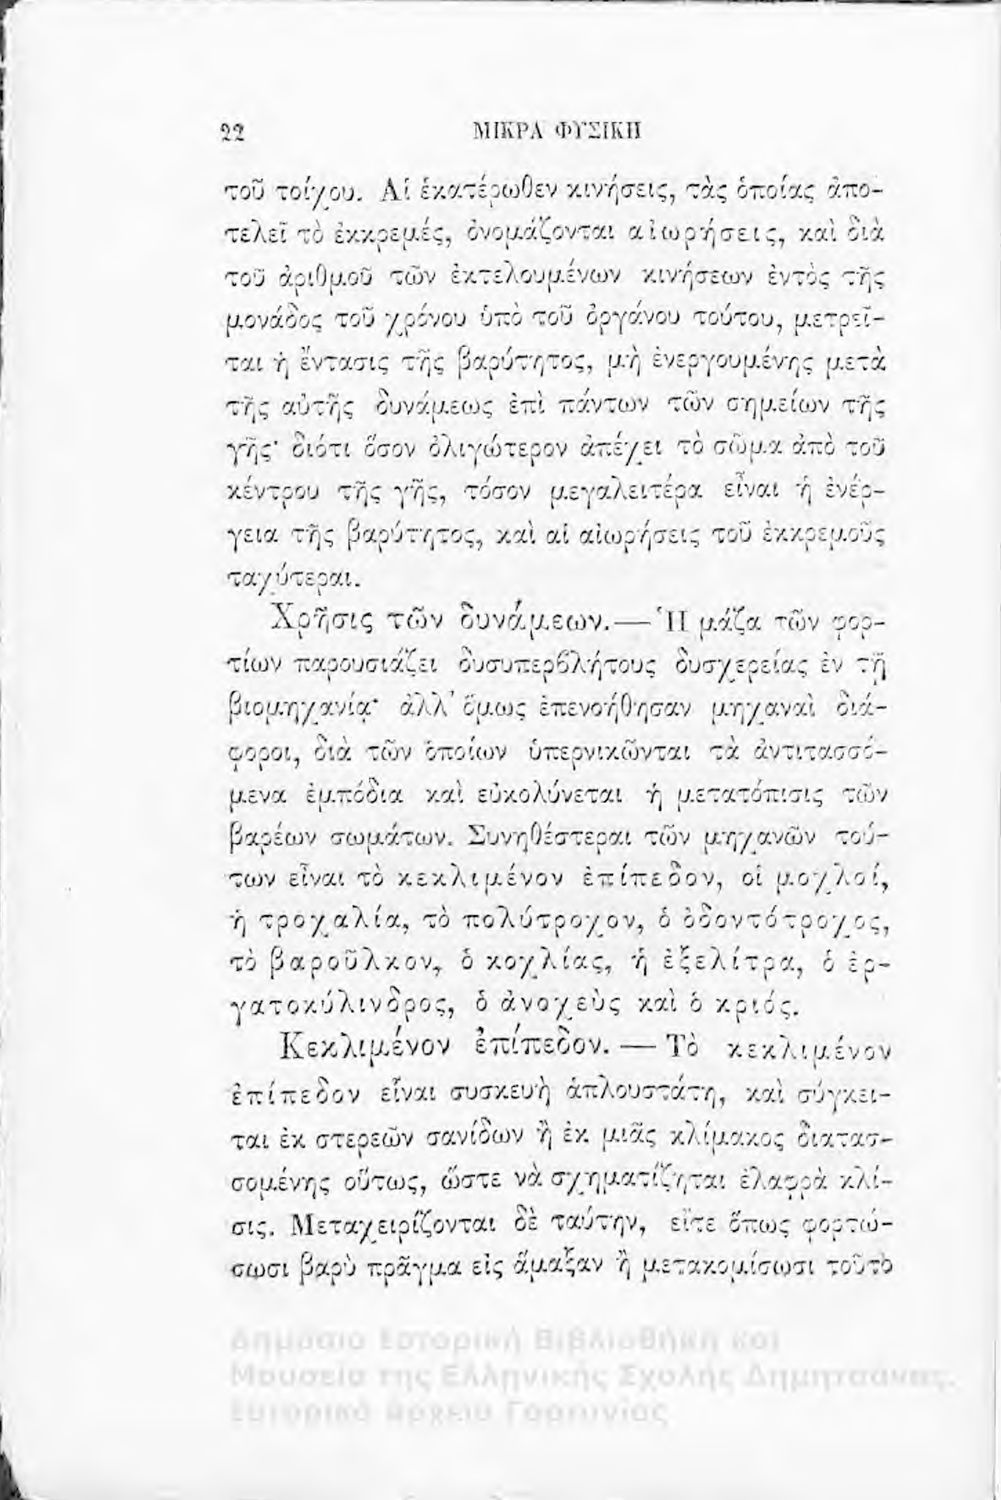 22 ΜΙΚΡΑ ΦΥΣΙΚΗ
τοῦ τοίχου. Αἱ ἑκατέρωθεν κινήσεις, τὰς ὁποίας ἀπο-
τελεῖ τὸ ἐκκρεμές, ὀνομάζονται αἰωρήσεις, καὶ διὰ
τοῦ ἀριθμοῦ τῶν ἐκτελουμένων κινήσεων ἐντὸς τῆς
μονάδος τοῦ χρόνου ὑπὸ τοῦ ὀργάνου τούτου, μετρεῖ-
ται ἡ ἔντασις τῆς βαρύτητος, μὴ ἐνεργουμένης μετὰ
τῆς αὐτῆς δυνάμεως ἐπὶ πάντων τῶν σημείων τῆς
γῆς· διότι ὅσον ὀλιγώτερον ἀπέχει τὸ σῶμα ἀπὸ τοῦ
κέντρου τῆς γῆς, τόσον μεγαλειτέρα εἶναι ἡ ἐνέρ-
γεια τῆς βαρύτητος, καὶ αἱ αἰωρήσεις τοῦ ἐκκρεμοῦς
ταχύτεραι.
Χρῆσις τῶν δυνάμεων.— Ἡ μάζα τῶν φορ-
τίων παρουσιάζει δυσυπερβλήτους δυσχερείας ἐν τῇ
βιομηχανίᾳ· ἀλλ' ὅμως ἐπενοήθησαν μηχαναὶ διά-
φοροι, διὰ τῶν ὁποίων ὑπερνικῶνται τὰ ἀντιτασσό-
μενα ἐμπόδια καὶ εὐκολύνεται ἡ μετατόπισις τῶν
βαρέων σωμάτων. Συνηθέστεραι τῶν μηχανῶν τού-
των εἶναι τὸ κεκλιμένον ἐπίπεδον, οἱ μοχλοί,
ἡ τροχαλία, τὸ πολύτροχον, ὁ ὀδοντότροχος,
τὸ βαροῦλκον, ὁ κοχλίας, ἡ ἐξελίτρα, ὁ ἐρ-
γατοκύλινδρος, ὁ ἀνοχεὺς καὶ ὁ κριός.
Κεκλιμένον ἐπίπεδον. — Τὸ κεκλιμένον
ἐπίπεδον εἶναι συσκευὴ ἁπλουστάτη, καὶ σύγκει-
ται ἐκ στερεῶν σανίδων ἢ ἐκ μιᾶς κλίμακος διατασ-
σομένης οὕτως, ὥστε νὰ σχηματίζηται ἐλαφρὰ κλί-
σις. Μεταχειρίζονται δὲ ταύτην, εἴτε ὅπως φορτώ-
σωσι βαρὺ πρᾶγμα εἰς ἅμαξαν ἢ μετακομίσωσι τοῦτο
Δημόσια Ιστορική Βιβλιοθήκη και
Μουσείο της Ελληνικής Σχολής Δημητσάνας.
Ιστορικό Αρχείο Γορτυνίας